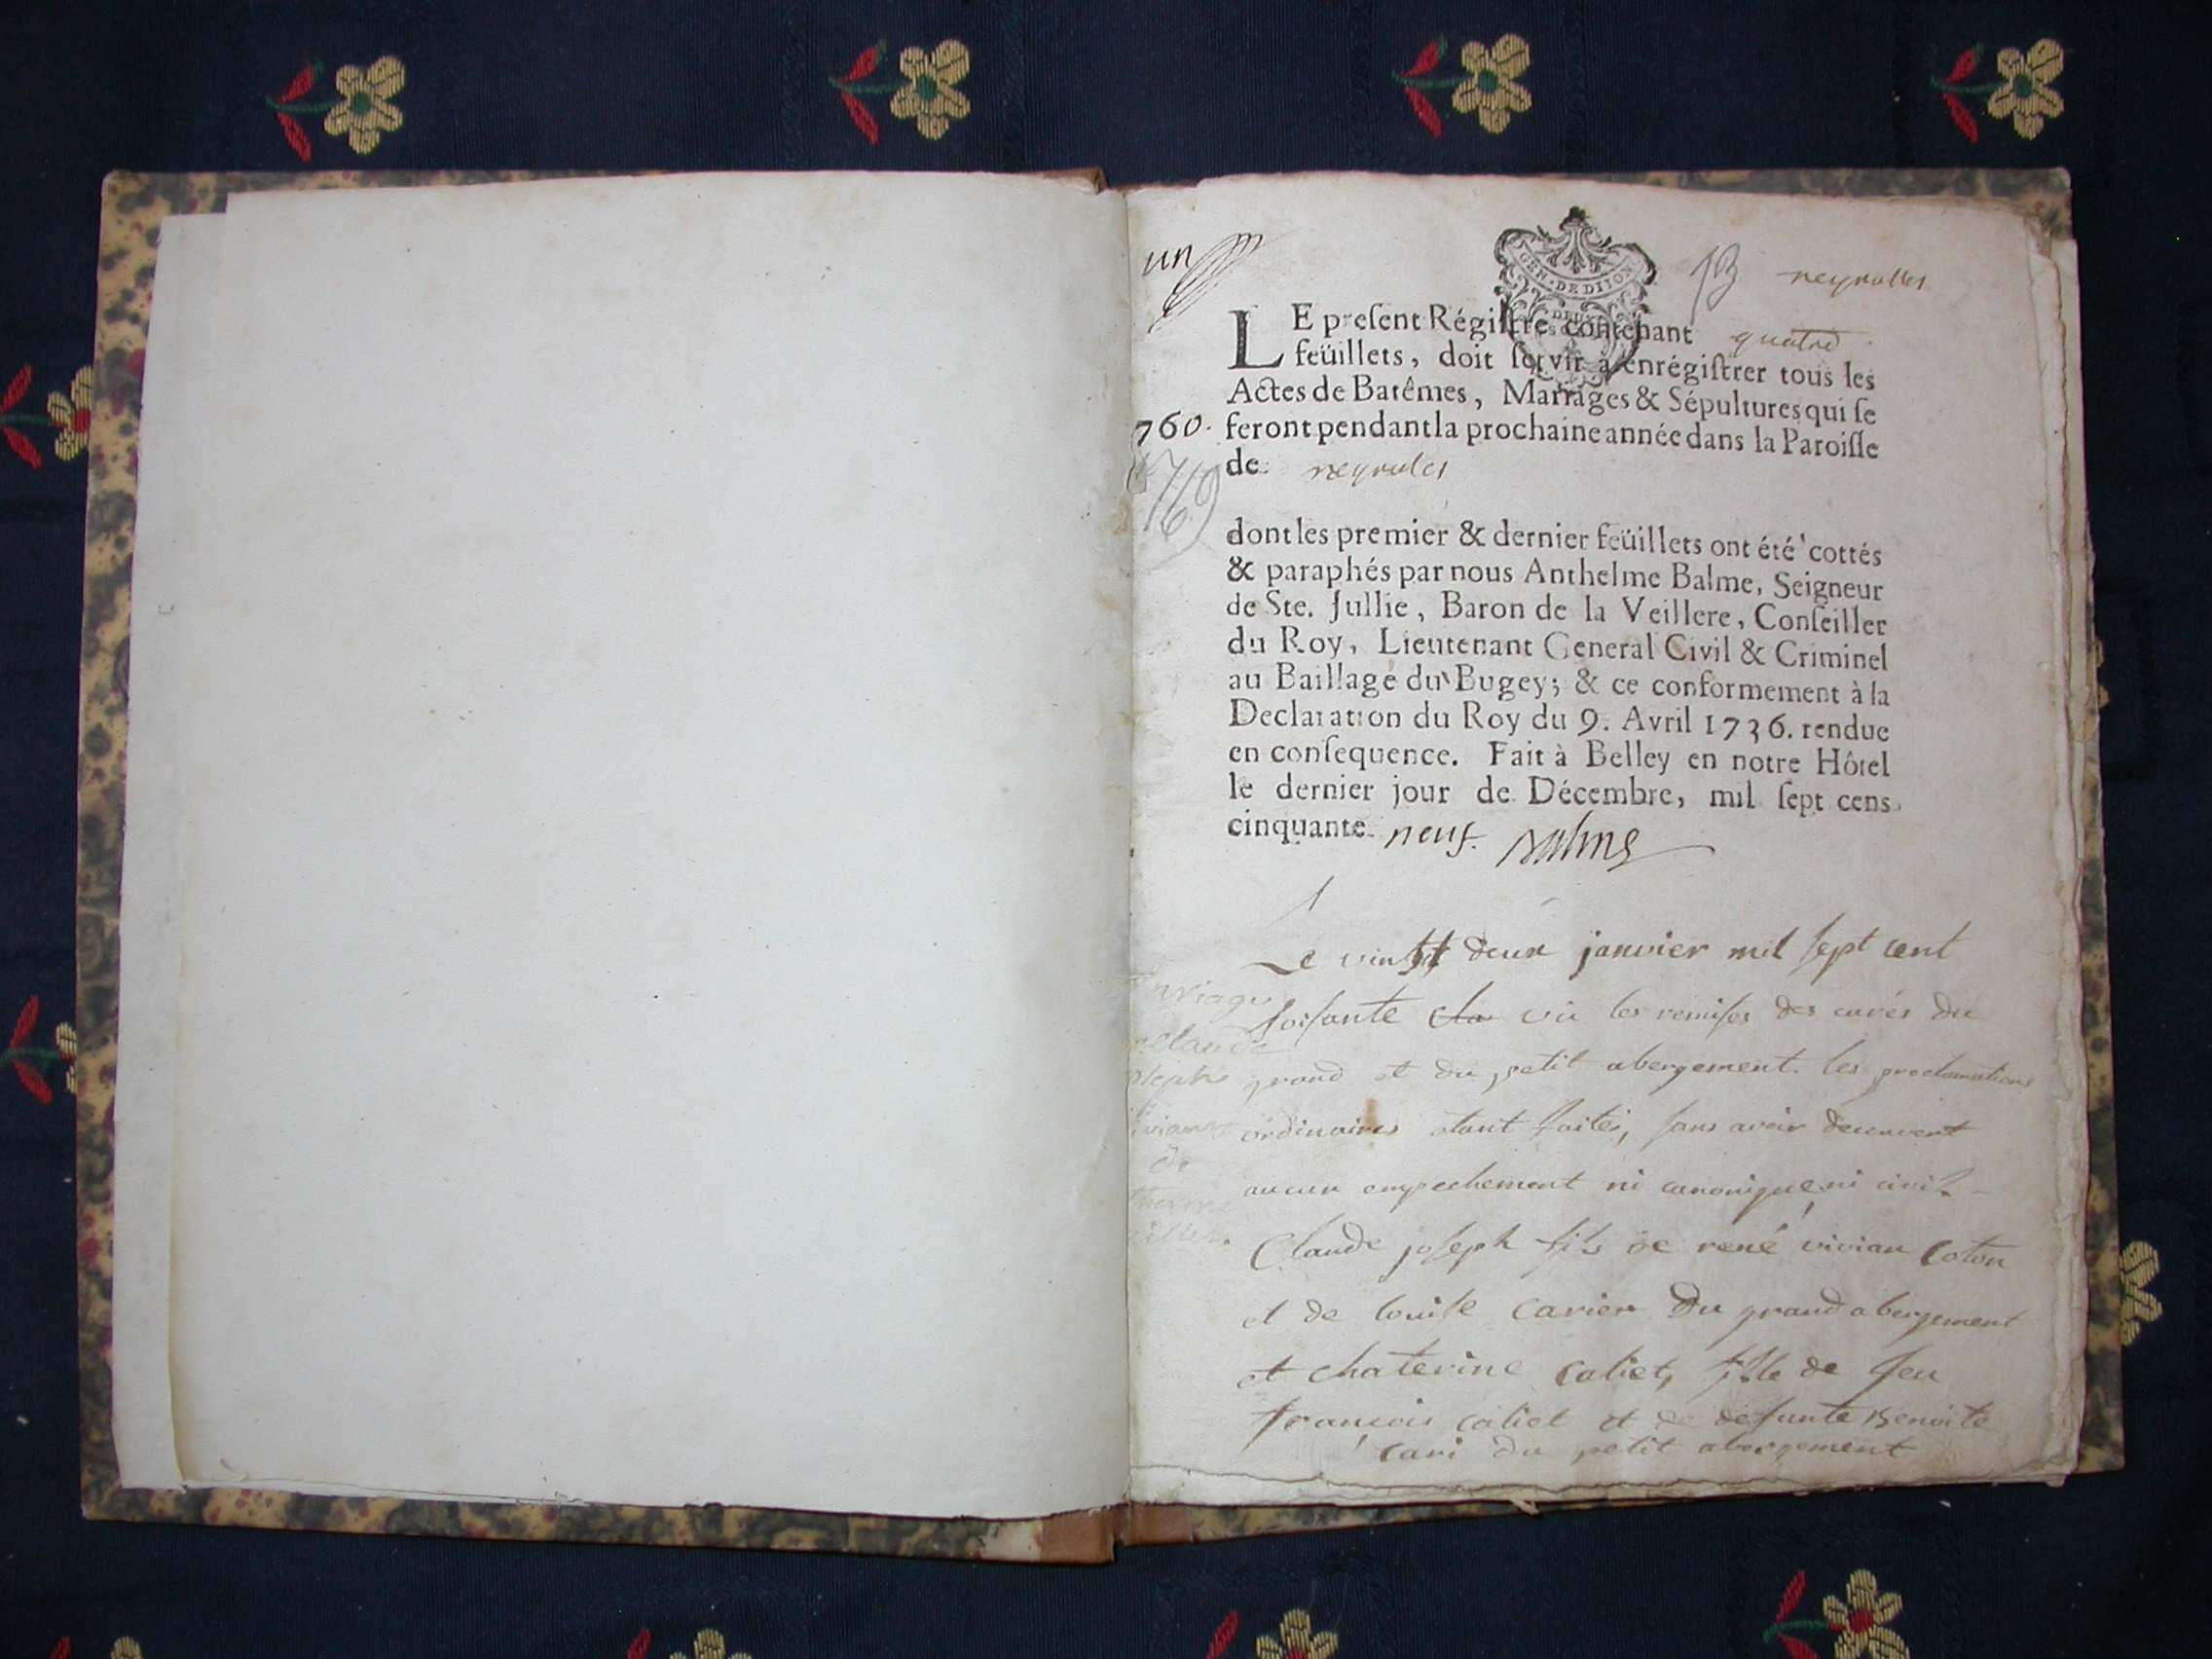 un
GEN. DE DIJON
DEUX
neyrolles
LE preſent Régiſtre contenant quatre
feüillets, doit ſervir à enrégiſtrer tous les
Actes de Batêmes, Mariages & Sépultures qui ſe
760. feront pendant la prochaine année dans la Paroiſſe
de neyroles
1769
dont les premier & dernier feüillets ont été cottés
& paraphés par nous Anthelme Balme, Seigneur
de Ste. Jullie, Baron de la Veillere, Conſeiller
du Roy, Lieutenant General Civil & Criminel
au Baillage du Bugey; & ce conformement à la
Declaration du Roy du 9. Avril 1736. rendue
en conſequence. Fait à Belley en notre Hôtel
le dernier jour de Décembre, mil ſept cens
cinquante neuf. Balme
Le vingt deux janvier mil sept cent
soisante vû les remises des curés du
grand et du petit abergement. les proclamations
ordinaires étant faites, sans avoir decouvert
aucun empechement ni canonique, ni civil
Claude joseph fils de rené vivian coton
et de louise carier Du grand abergement
et chaterine caliet, fille de feu
françois caliet et de defunte Benoite
cari du petit abergement